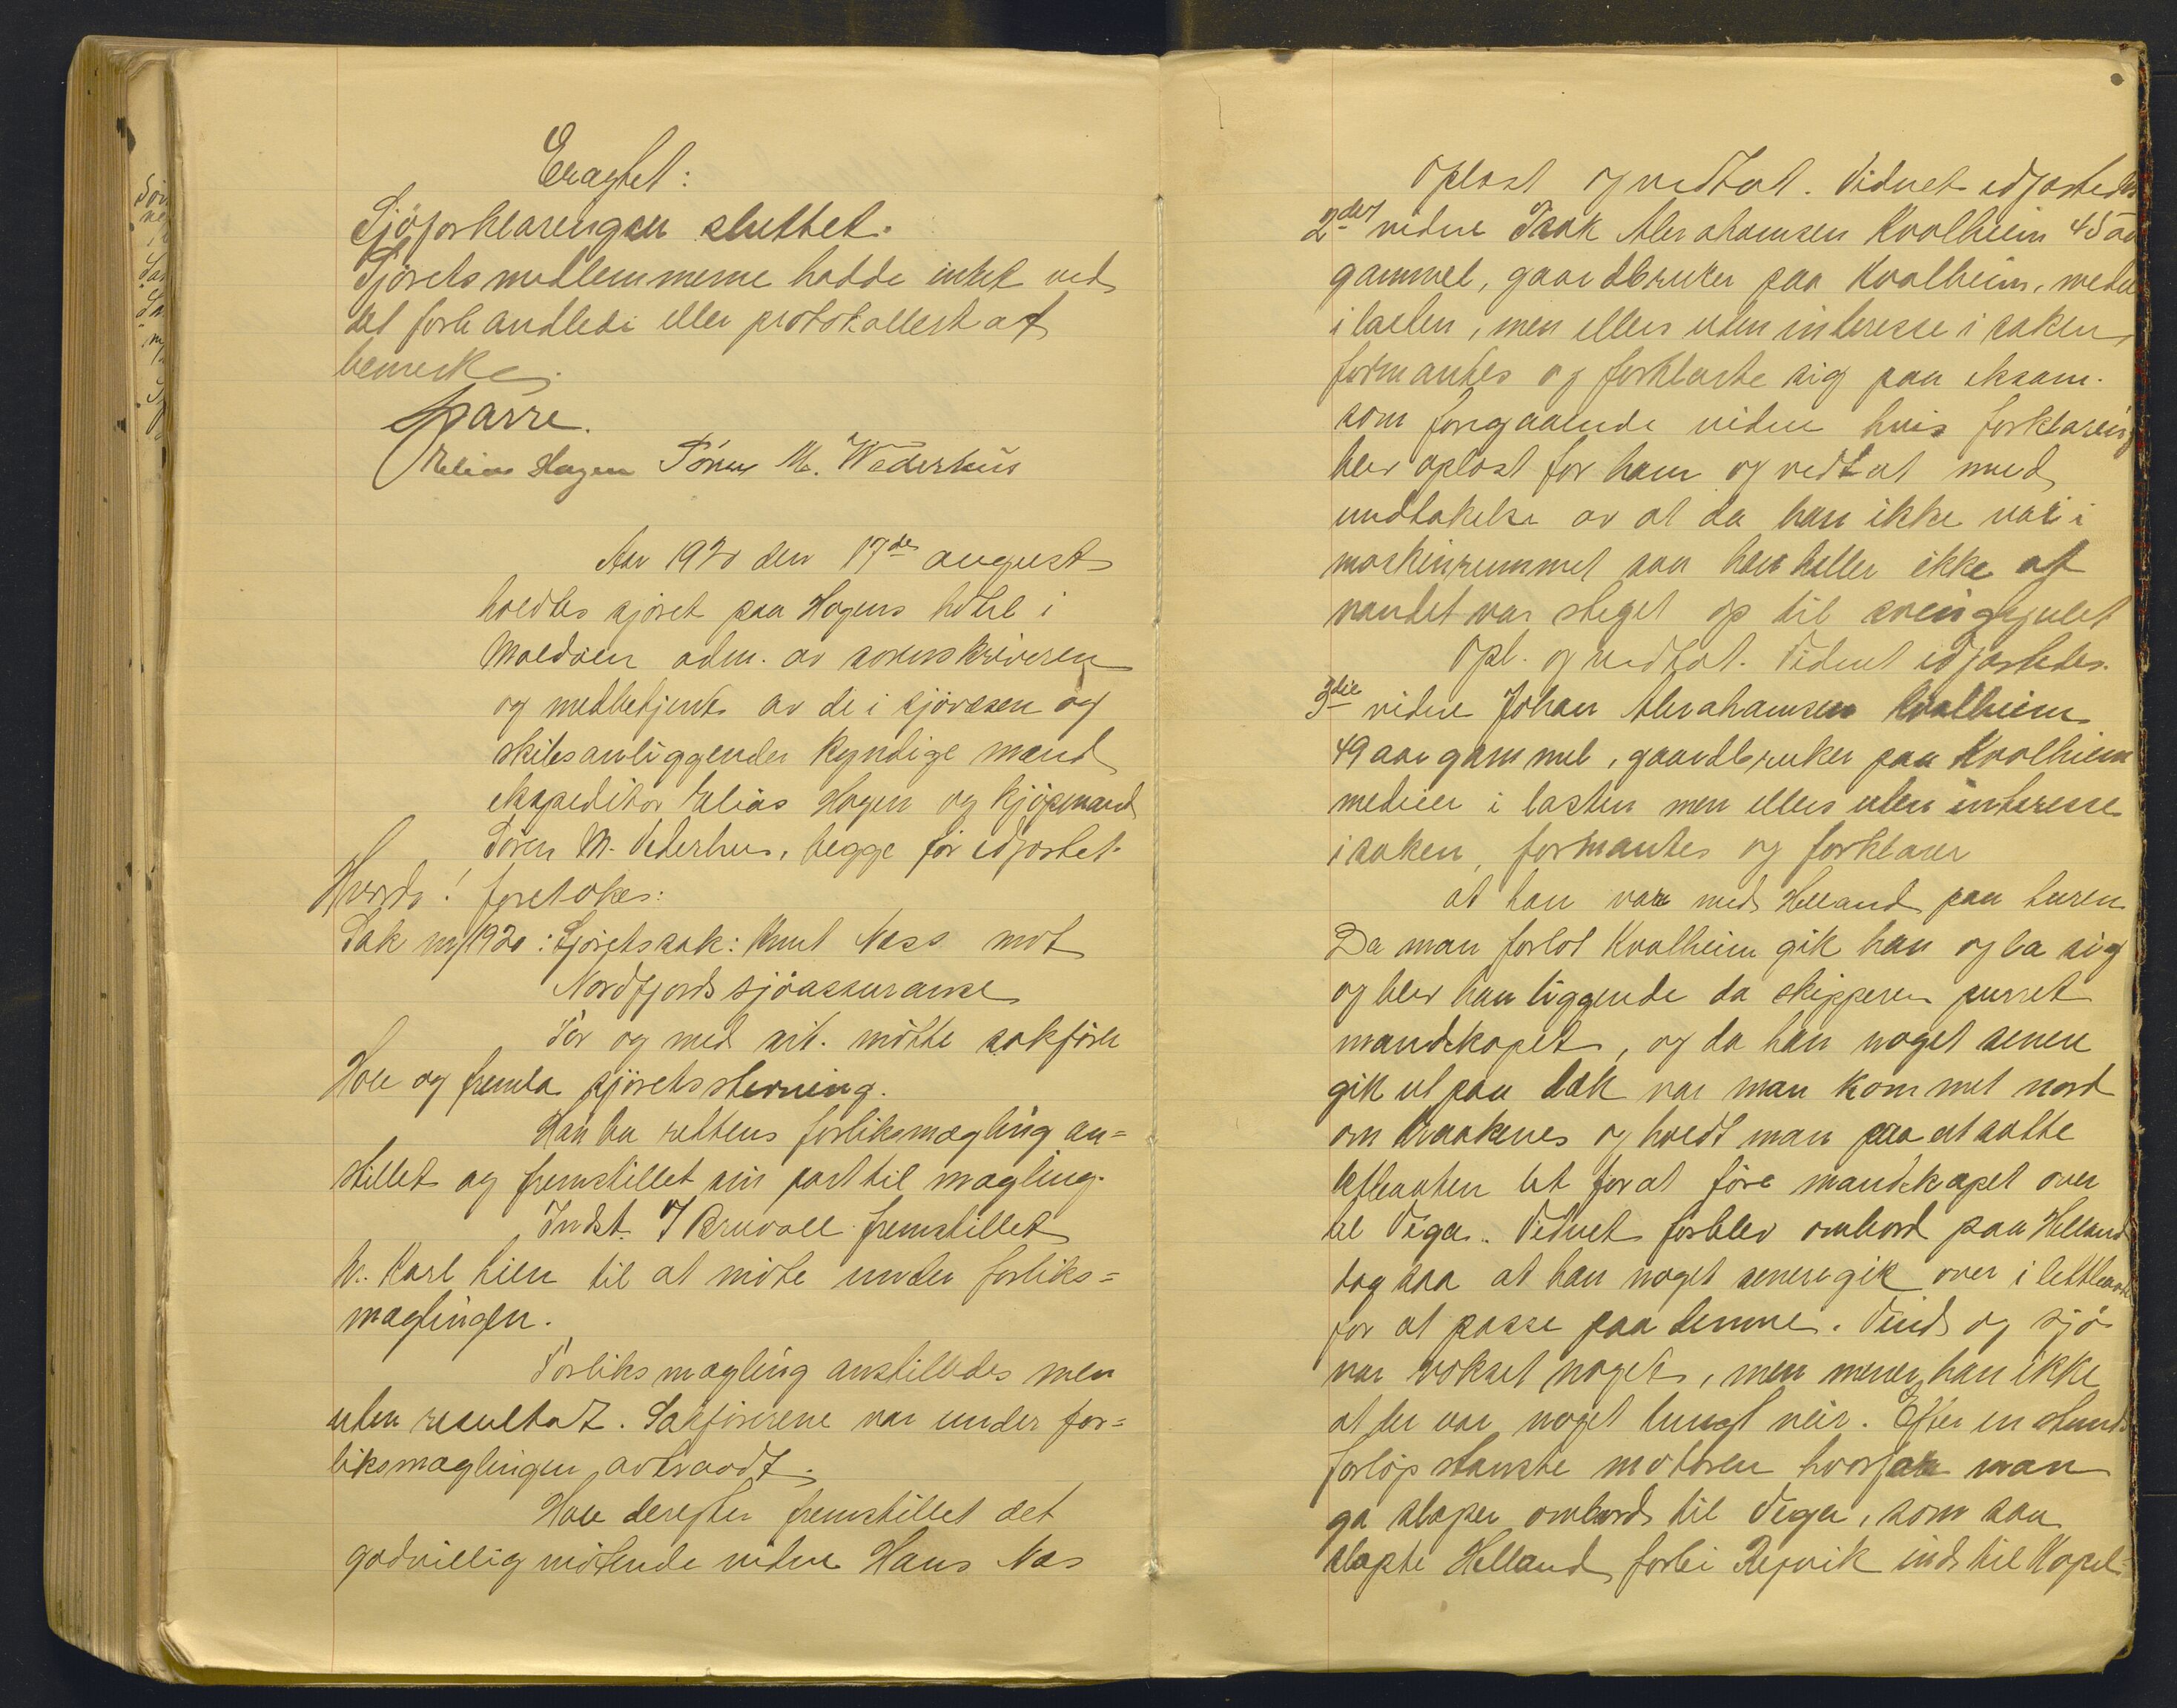 Eragtet:
Sjöforklaringen sluttet.
Sjöretsmedlemmerne hadde intet ved
det forhandlede eller protokollert at
bemerke.
Sparre.
Elias Hagen Sören M. Wederhus
Aar 1920 den 17de august
holdtes sjöret paa Hagens hotel i
Maldöen adm. av sorenskriveren
og medbetjent av de i sjövæsen og
skibsanliggender kyndige mænd
ekspeditör Elias Hagen og kjöpmand
Sören M. Vederhus, begge för edfæstet.
Hvorda! foretokes:
Sak 1920: Sjöretssak: Knut Næss mot
Nordfjords sjöassuranse
For og med cit. mötte sakförer
Hole og fremla sjöretsstevning.
Han ba rettens forliksmægling an=
stillet og fremstillet sin part til mægling.
Indst. J Bruvoll fremstillet
hr. Karl Lien til at möte under forliks=
mæglingen.
Forliksmægling anstilledes men
uten resultat. Sakförerene var under for=
liksmæglingen avtraadt.
Hole derefter fremstillet det
godvillig mötende vidne Hans Næs
Oplæst og vedtat. Vidnet edfæstedes
2det vidne Isak Abrahamsen Kvalheim 45 aar
gammel, gaardbruker paa Kvalheim, medeier
i lasten, men ellers uten interesse i saken,
formantes og forklarte sig paa eksam.
som foregaaende vidne hvis forklaring
blev oplæst for ham og vedtat med
undtakelse av at da han ikke var i
maskinrummet saa han heller ikke at
vandet var steget op til svinghjulet
Opl. og vedtat. Vidnet edfæstedes.
3die vidne Johan Abrahamsen Kvalheim
49 aar gammel, gaardbruker paa Kvalheim
medeier i lasten men ellers uten interesse
i saken, formantes og forklarer
at han var med Helland paa turen
Da man forlot Kvalheim gik han og la sig
og blev han liggende da skipperen purret
mandskapet, og da han noget senere
gik ut paa dæk var man kommet nord
om Kraakenes og holdt man paa at sætte
letbaaten ut for at före mandskapet over
til Vega. Vidnet forblev ombord paa Helland
dog saa at han noget senere gik over i lettbaaten
for at passe paa denne. Vind og sjö
var vokset noget, men mener han ikke
at der var noget tungt veir. Efter en stunds
forlöp stanste motoren hvorfor man
ga slæper ombord til Vega, som saa
slæpte Helland forbi Refvik ind til Kapel=